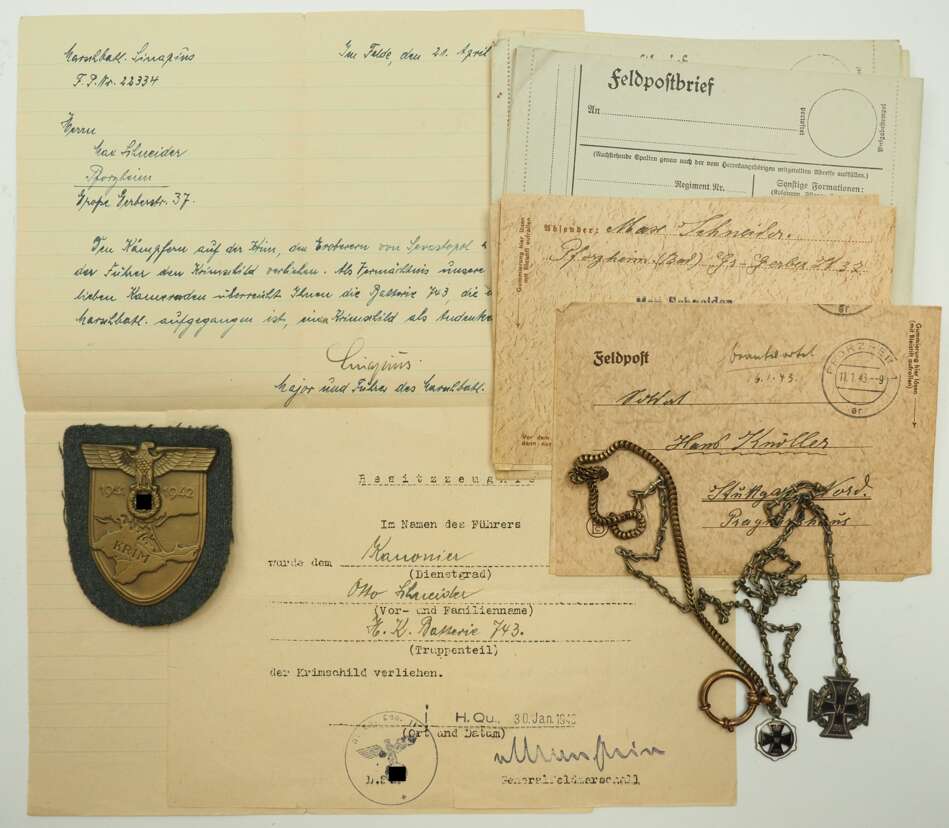 Marschbatl. Sinapius
F.P.Nr. 22334
Im Felde, den 20. April
Herrn
Max Schneider
Pforzheim
Große Gerberstr. 37.
Den Kämpfern auf der Krim, den Eroberern von Sevastopol
der Führer den Krimschild verliehen. Als Vermächtnis unsere
lieben Kameraden überreicht Ihnen die Batterie 743, die
Marschbatl. aufgegangen ist, einen Krimschild als Andenke
Sinapius.
Major und Führer des Marschbatl.
Feldpostbrief
An
(Nachstehende Spalten genau nach der vom Heeresangehörigen mitgeteilten Adresse ausfüllen.)
Regiment Nr.
Sonstige Formationen:
Absender: Max Schneider.
Pforzheim (Bad.) Gr-Gerber
Max Schneider
Gummierung hier lösen
Feldpost
beantwortet
PFORZHEIM
11.1.43-9
Gummierung hier lösen
(mit Bleistift aufrollen)
Soldat
Hans Knöller
Stuttgart Nord.
1941 1942
KRIM
Besitzzeugnis
Im Namen des Führers
wurde dem Kanonier
(Dienstgrad)
Otto Schneider
(Vor- und Familienname)
H. K. Batterie 743.
(Truppenteil)
der Krimschild verliehen.
H. Qu., 30. Jan. 194
(Ort und Datum)
Generalfeldmarschall